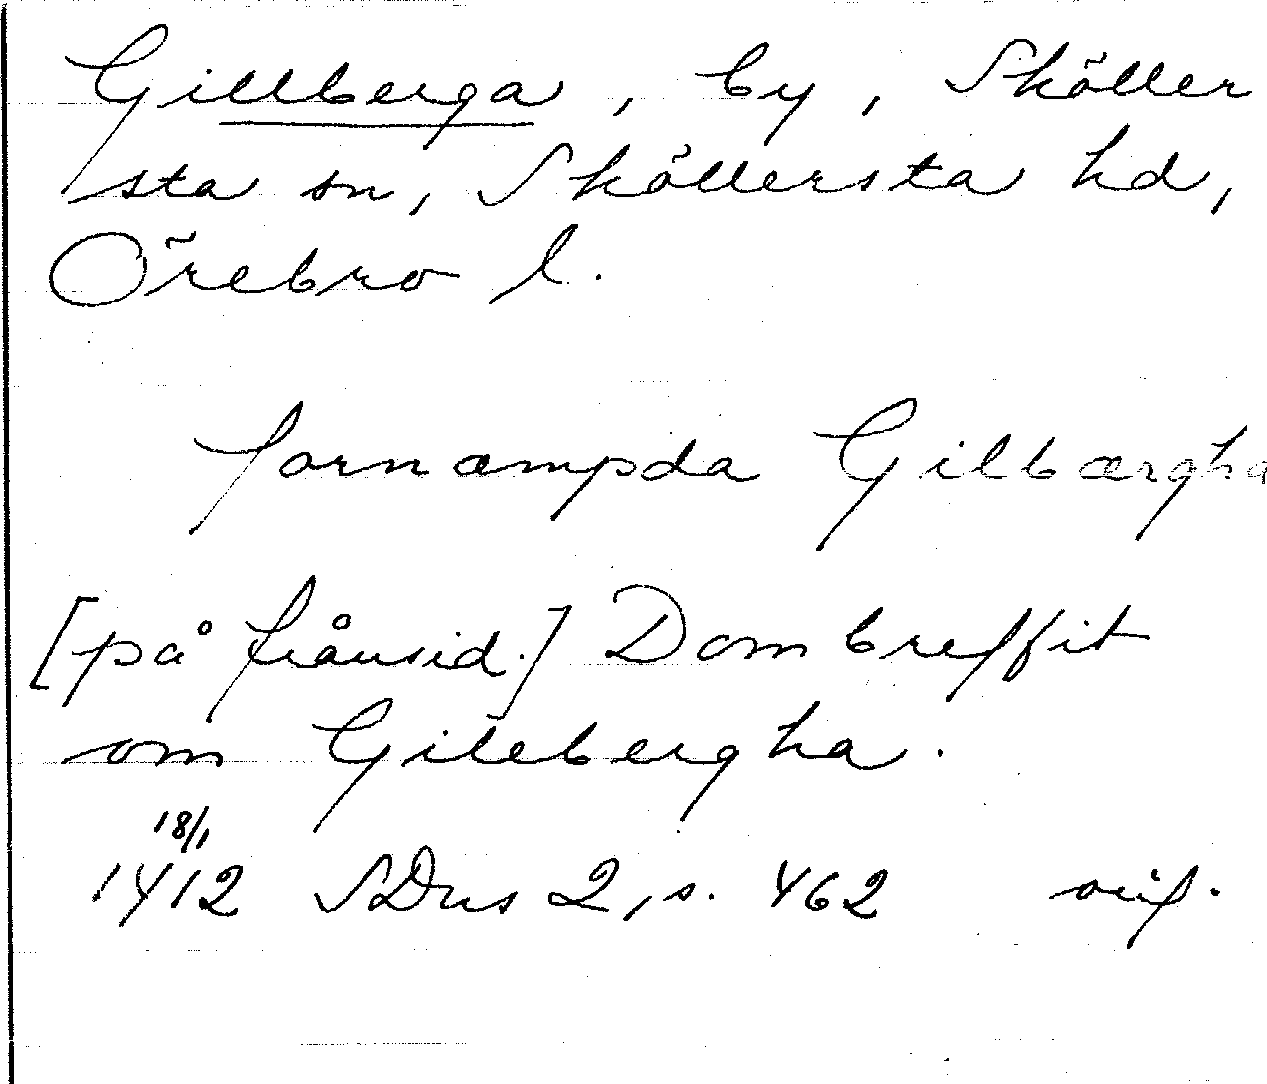 Gillberga, by, Sköller
sta sn, Sköllersta hd,
Örebro l.
fornæmpda Gilbærgha
[på frånsid.] Dombreffit
om Gilebergha.
18/1
1412 SDns 2, s. 462 orig.